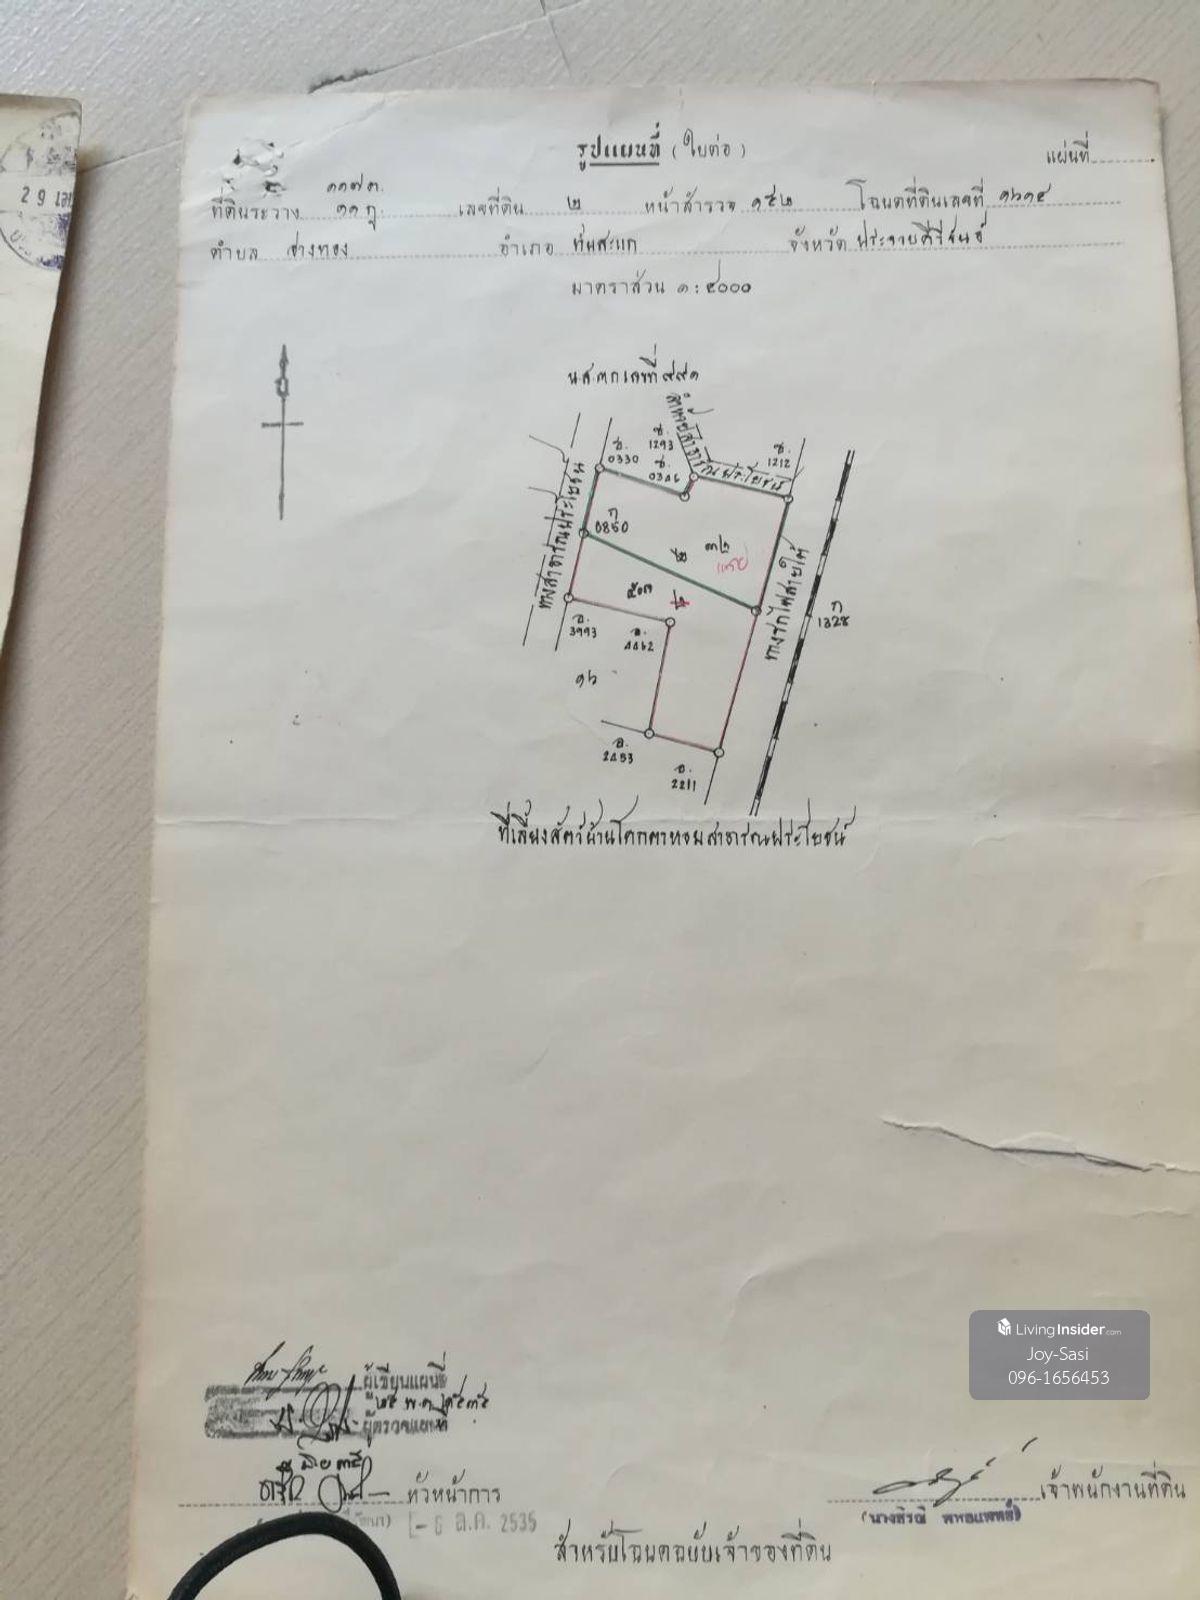 รูปแผนที่ (ใบต่อ)
แผ่นที่
๑๑๗๓
ที่ดินระวาง ๑๑ฎ เลขที่ดิน ๒ หน้าสำรวจ ๑๕๒ โฉนดที่ดินเลขที่ ๑๖๑๕
ตำบล อ่างทอง อำเภอ ทับสะแก จังหวัด ประจวบคีรีขันธ์
มาตราส่วน ๑:๔๐๐๐
น.ส.๓ก เลขที่ ๙๙๑
ลำห้วยสาธารณประโยชน์
ช. 1293
ช. 0330
ช.
ช. 1212
ทางสาธารณประโยชน์
ก 0860
๓๒
๕๐๓
ทางรถไฟสายใต้
ก 1328
อ. 3993
อ. 4462
๑๖
อ. 2453
อ. 2211
ที่เลี้ยงสัตว์บ้านโคกตาหอมสาธารณประโยชน์
LivingInsider.com
Joy-Sasi
096-1656453
ผู้เขียนแผนที่
๒๕ พ.ค. ๒๕๓๕
ผู้ตรวจแผนที่
หัวหน้าการ
เจ้าพนักงานที่ดิน
- 6 ต.ค. 2535
สำหรับโฉนดฉบับเจ้าของที่ดิน
29